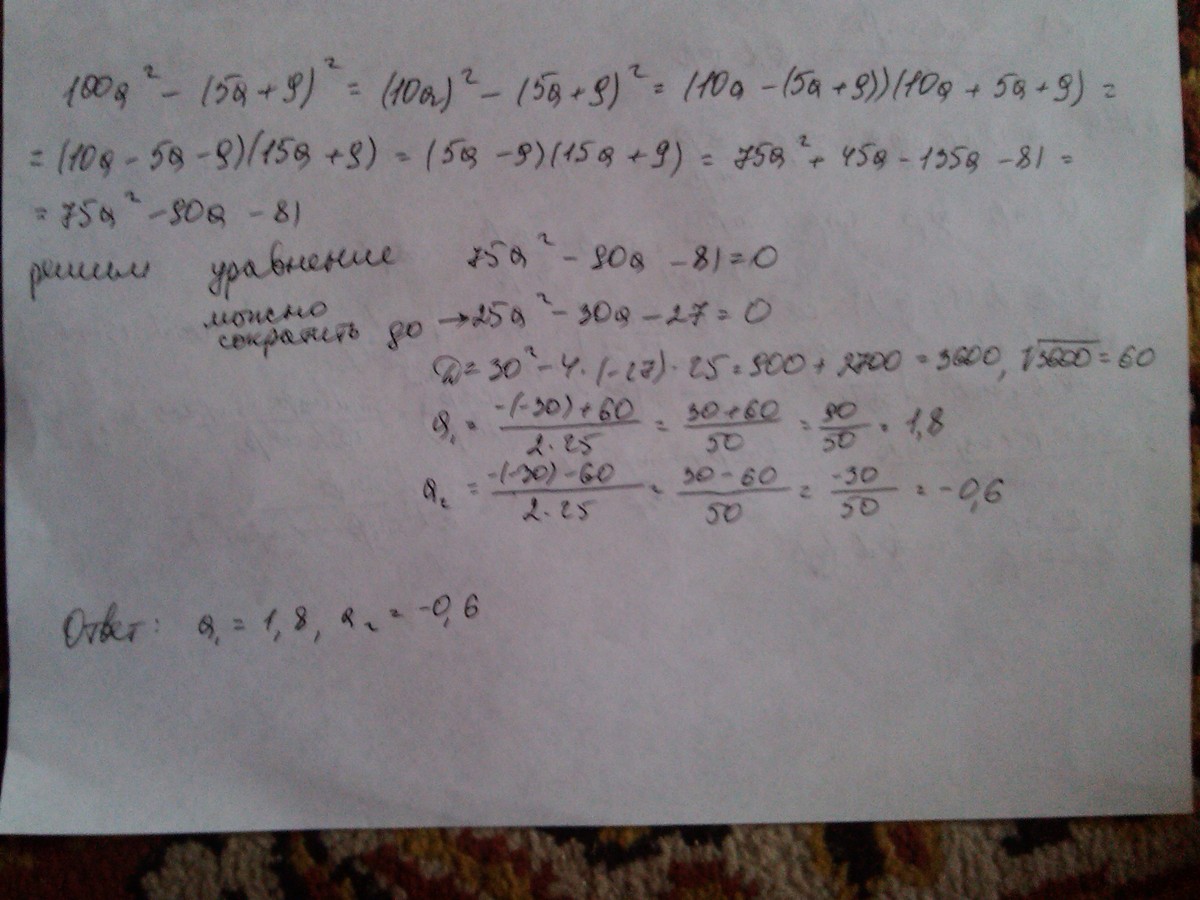 100a² - (5a + 9)² = (10a)² - (5a + 9)² = (10a - (5a + 9))(10a + 5a + 9) =
= (10a - 5a - 9)(15a + 9) = (5a - 9)(15a + 9) = 75a² + 45a - 135a - 81 =
= 75a² - 90a - 81
решим уравнение 75a² - 90a - 81 = 0
можно сократить до → 25a² - 30a - 27 = 0
D = 30² - 4 · (-27) · 25 = 900 + 2700 = 3600, √3600 = 60
a₁ = (-(-30) + 60)/(2 · 25) = (30 + 60)/50 = 90/50 = 1,8
a₂ = (-(-30) - 60)/(2 · 25) = (30 - 60)/50 = -30/50 = -0,6
Ответ: a₁ = 1,8, a₂ = -0,6